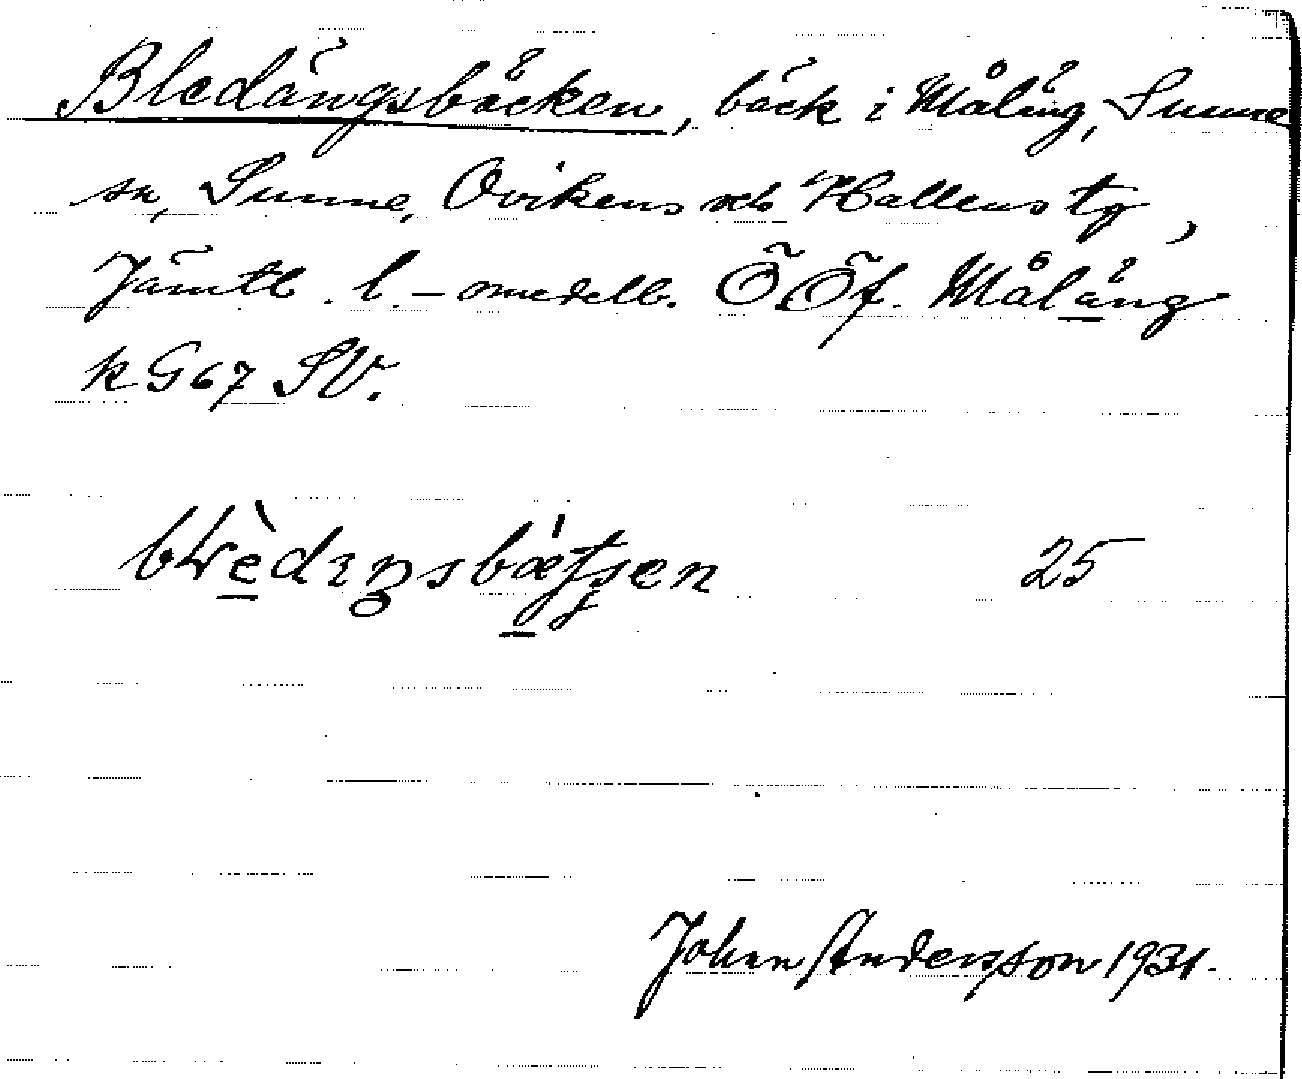 Bledängsbäcken, bäck i Målång, Sunne
sn, Sunne, Ovikens och Hallens tg,
Jämtl. l. – omedelb. Ö Öf. Målång
k G67 SV.
25
Johan Andersson 1931.